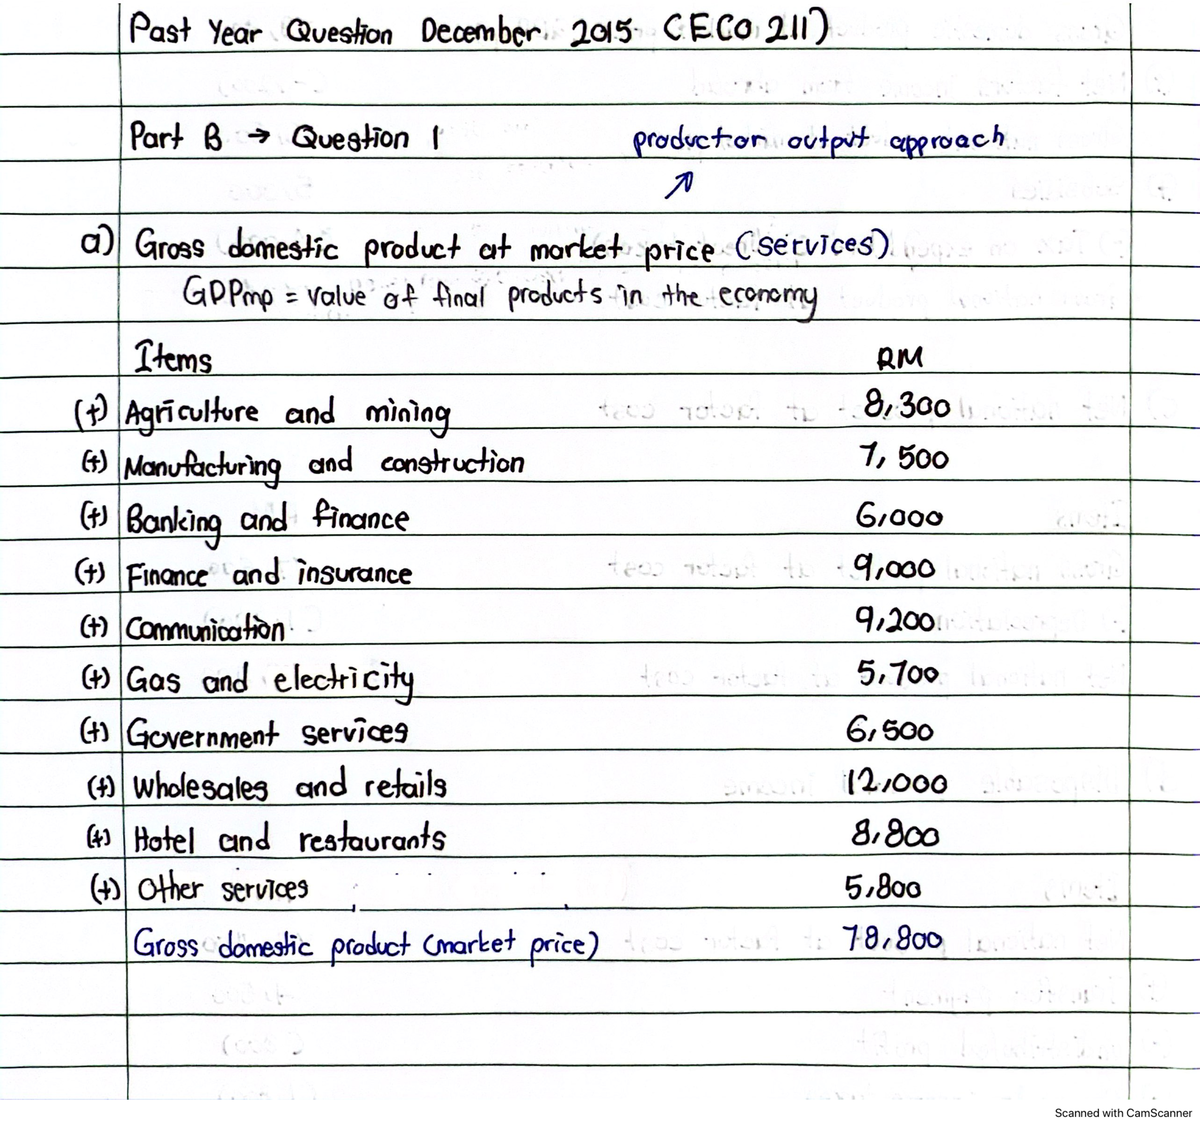 Past Year Question December 2015 CECO 211)
Part B → Question 1
product or output approach
a) Gross domestic product at market price (services)
GDPmp = value of final products in the economy
Items RM
(+) Agriculture and mining 8,300
(+) Manufacturing and construction 7,500
(+) Banking and finance 6,000
(+) Finance and insurance 9,000
(+) Communication 9,200
(+) Gas and electricity 5,700
(+) Government services 6,500
(+) Wholesales and retails 12,000
(+) Hotel and restaurants 8,800
(+) Other services 5,800
Gross domestic product (market price) 78,800
Scanned with CamScanner